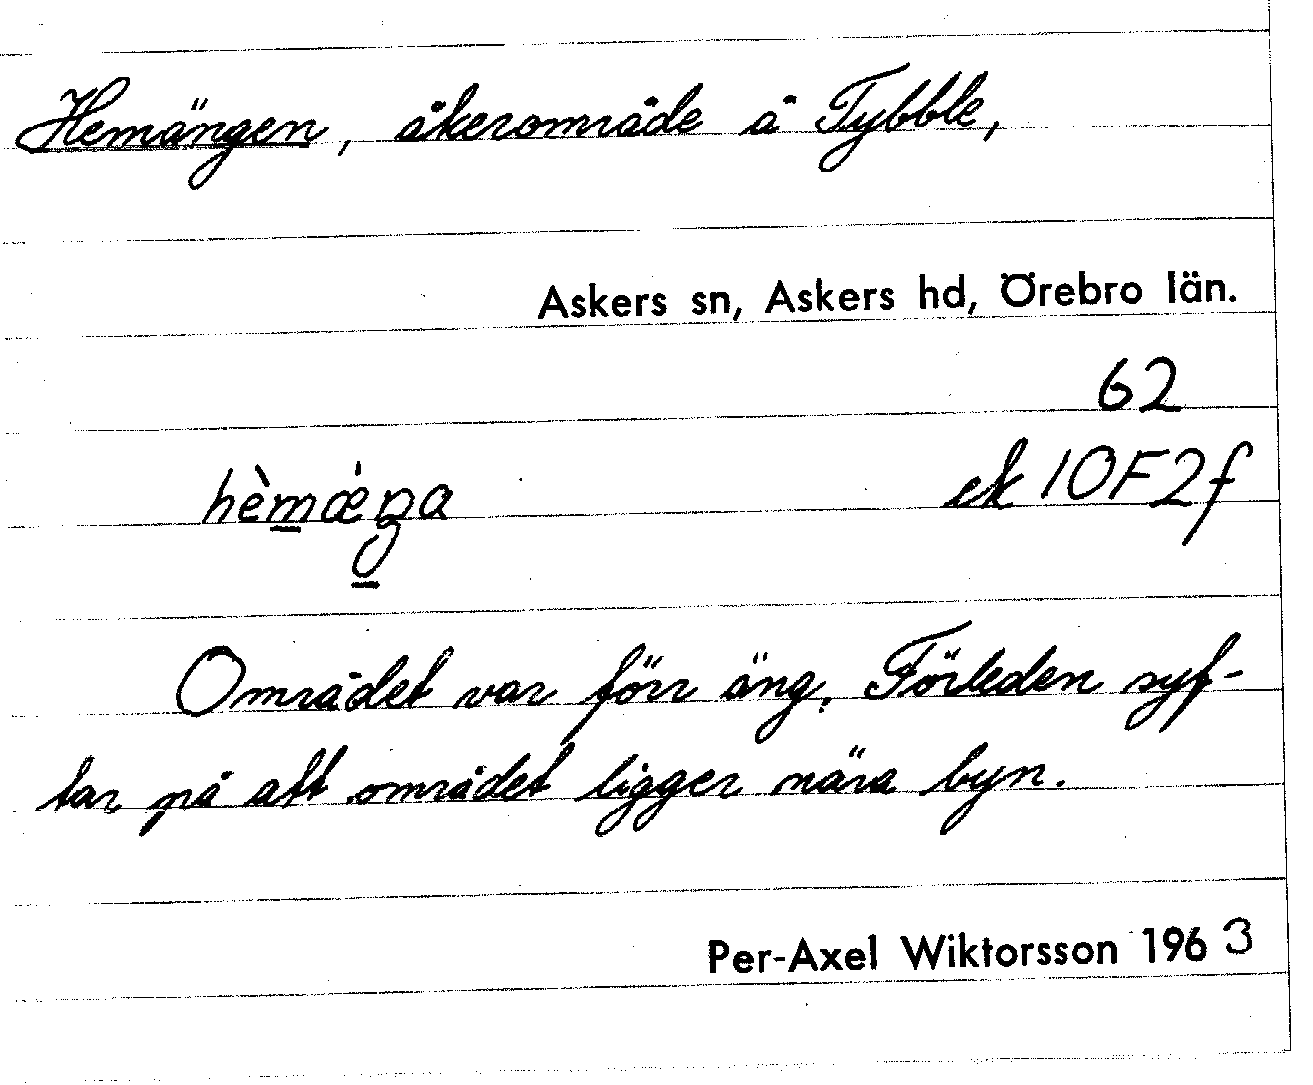 Hemängen, åkerområde å Tybble,
Askers sn, Askers hd, Örebro län.
62
hèmǽŋa ek 10F2f
Området var förr äng. Förleden syf-
tar på att området ligger nära byn.
Per-Axel Wiktorsson 1963